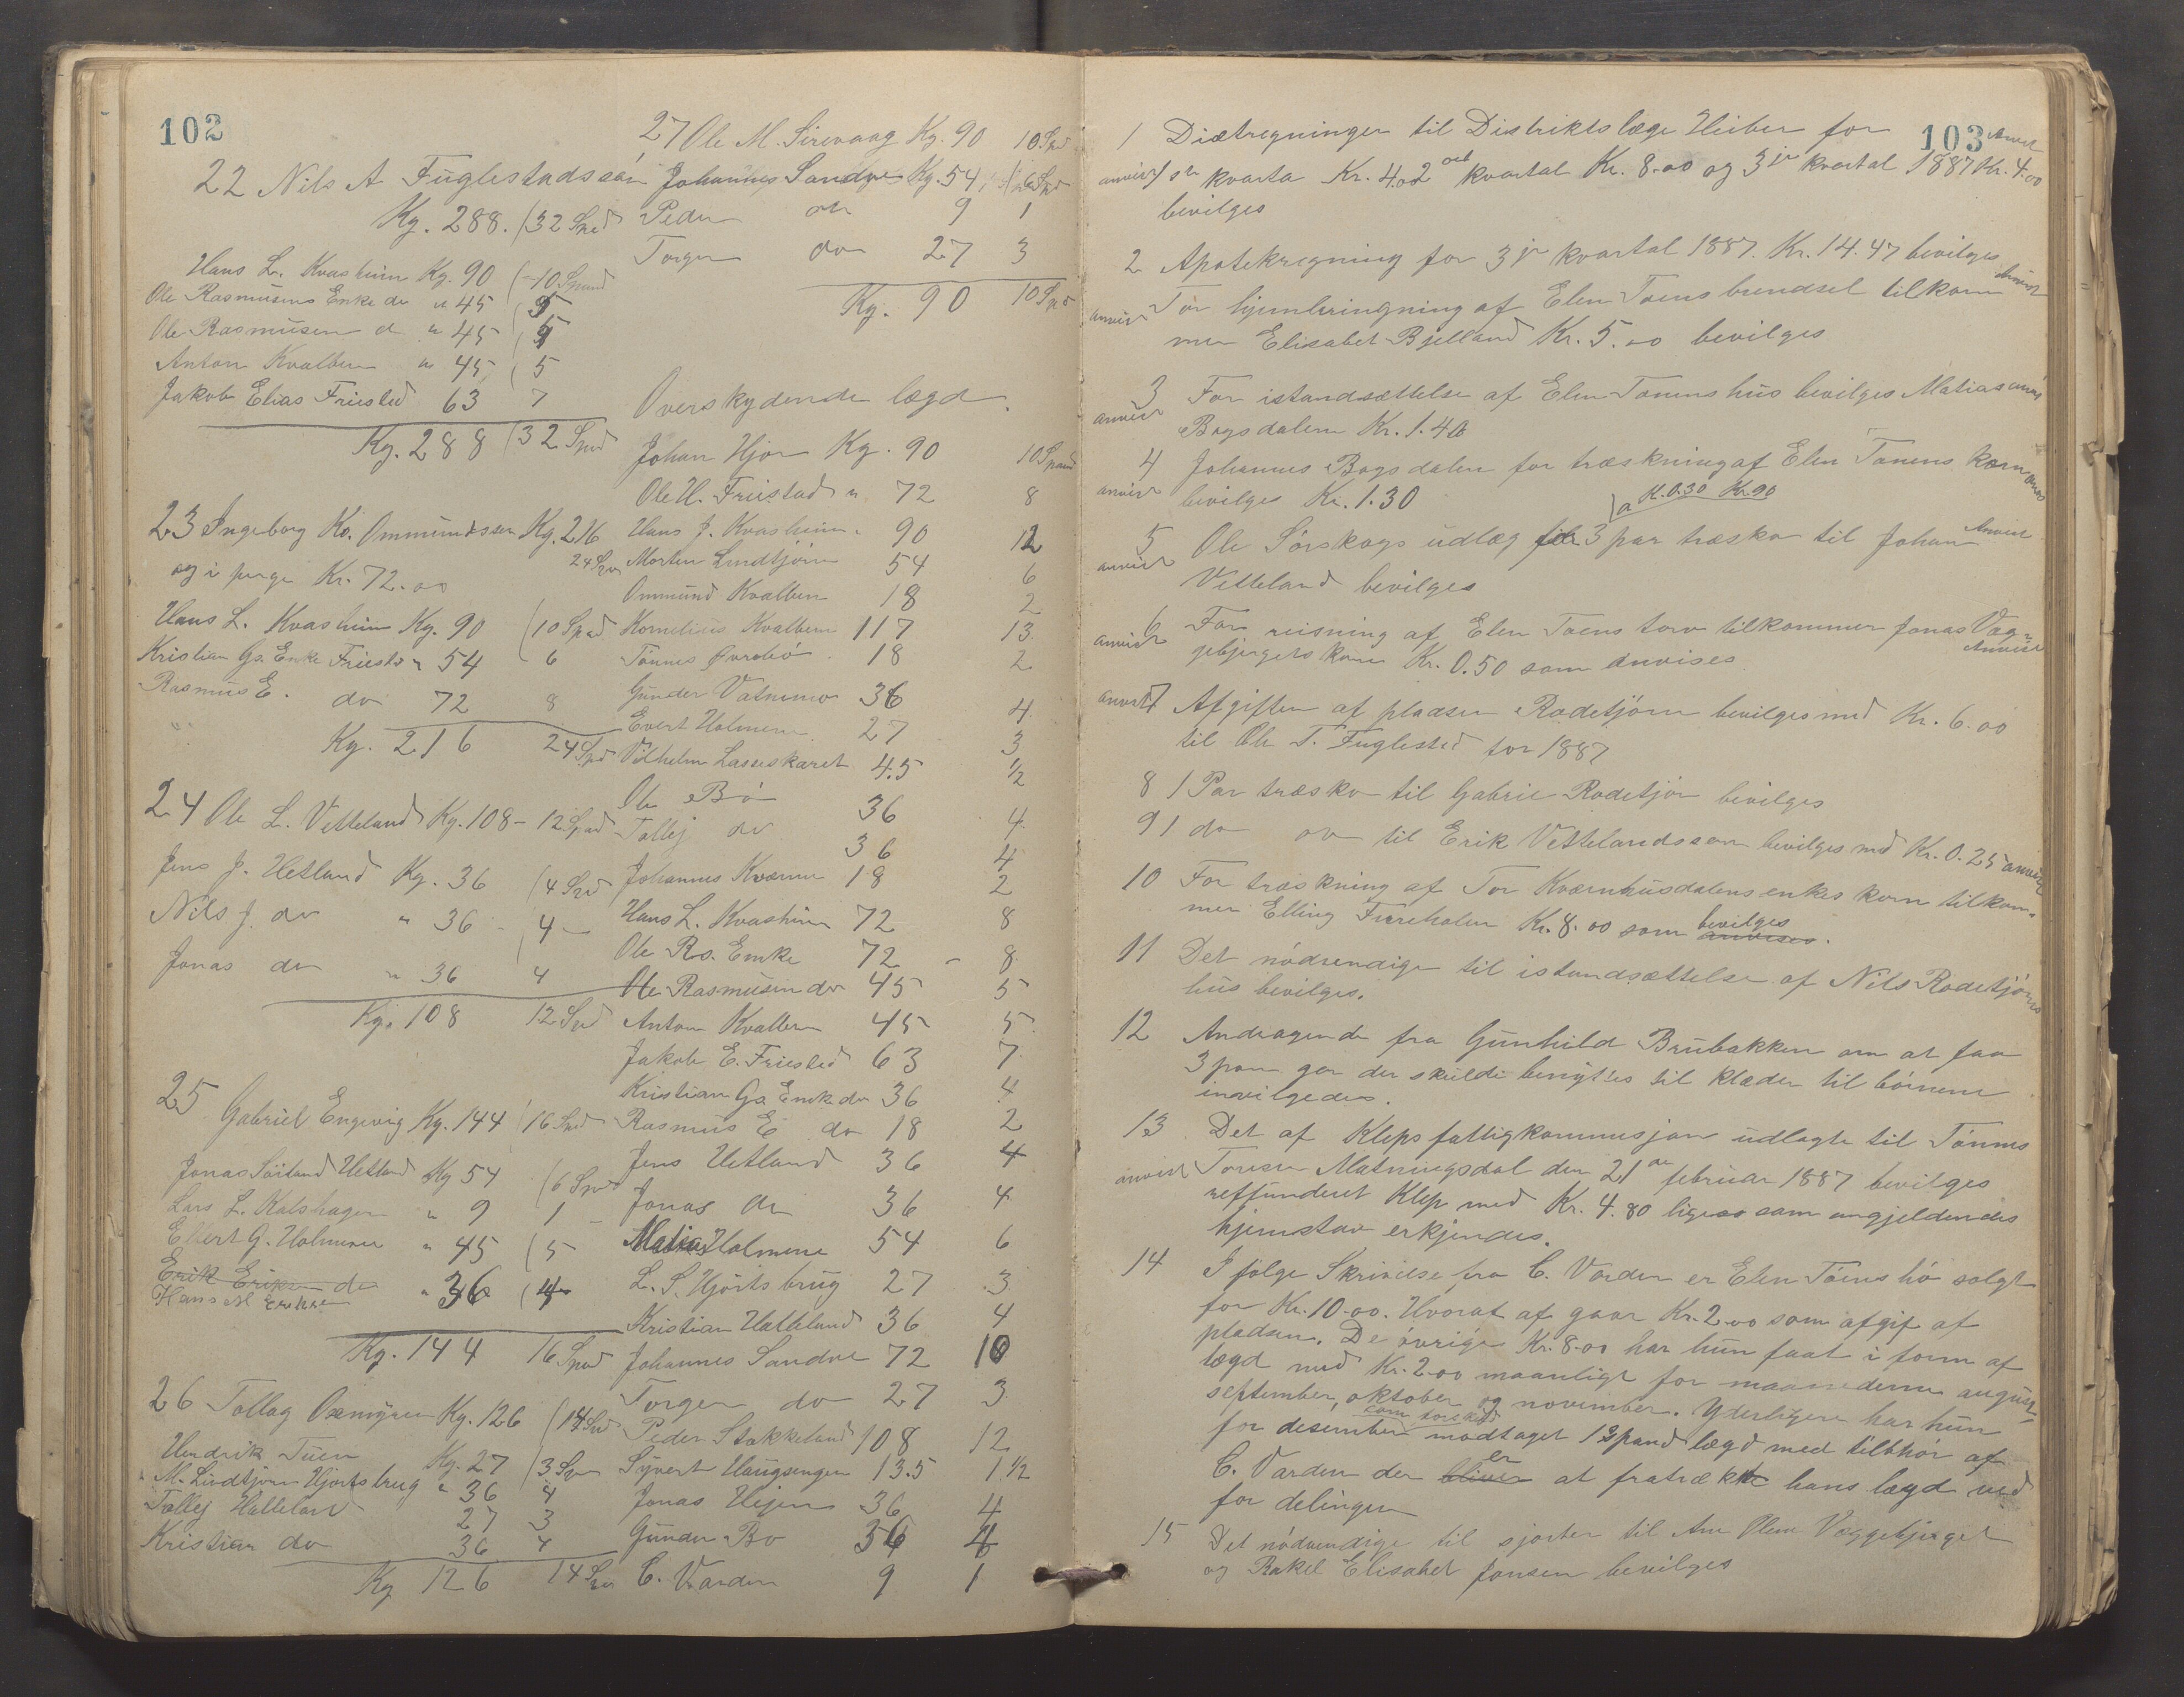 102
22 Nils A Fuglestadssøn
Kg. 288. (32 Spd
Hans L. Kvashiim Kg. 90 (10 Spand
Ole Rasmusens Enke do " 45 (5
Ole Rasmusen d " 45 (5
Anton Kvalben " 45 (5
Jakob Elias Friested 63 7
Kg. 288 (32 Spd
23 Ingeborg Kr. Ommundssen Kg. 216
24 Spd
og i penge Kr. 72.00
Hans L. Kvashiim Kg. 90 (10 Spd
Kristian Gs. Enke Friestd " 54 6
Rasmus E. do 72 8
Kg. 216 24 Spd
24 Ole L. Vetteland Kg. 108 - 12 Spd
Jens J. Hetland Kg. 36 (4 Spd
Nils J. do " 36 (4 -
Jonas do " 36 4
Kg. 108 12 Spd
25 Gabriel Engevig Kg. 144 (16 Spd
Jonas Hetland Kg 54 (6 Spd
Lars L. Kalshagen " 9 1
Elbert G. Holmene " 45 (5
Erik Eriksen do " 36 (4
Hans M Eriksen
Kg. 144 16 Spd
26 Tollag Oxmyren Kg. 126 (14 Spd
Hendrik Tuen Kg. 27 (3 Spd
M. Lindtjørn Hjorts brug " 36 4
Tollej Hatleland 27 3
Kristian do 36 4
Kg 126 14 Spd
27 Ole M. Sirevaag Kg. 90 10 Spd
Johannes Sandve Kg. 54 6 Spd
Peder do 9 1
Torger do 27 3
Kg. 90 10 Spd
Overskydende lægd.
Johan Hjor Kg. 90 10 Spand
Ole H. Friestad " 72 8
Hans J. Kvashiim " 90 12
Morten Lindtjørn 54 6
Ommund Kvalben 18 2
Kornelius Kvalben 117 13
Tønnes Øvrebø 18 2
Gunder Vatnemo 36 4
Evert Holmene 27 3
Vilhelm Lasseskaret 4.5 1/2
Ole Bø 36 4
Tollej do 36 4
Johannes Kværne 18 2
Hans L. Kvashiim 72 8
Ole Rs. Enke 72 - 8
Ole Rasmusen do 45 5
Anton Kvalben 45 5
Jakob E. Friested 63 7
Kristian Gs Enke do 36 4
Rasmus E do 18 2
Jens Hetland 36 4
Jonas do 36 4
Matias Holmene 54 6
L. S. Hjorts brug 27 3
Kristian Hatleland 36 4
Johannes Sandve 72 10
Torger do 27 3
Peder Stokkeland 108 12
Syvert Haugsengen 13.5 1 1/2
Jonas Hejen 36 4
Gunder Bo 36 4
C. Varden 9 1
103
1 Diætregninger til Distriktslæge Heiber for Anvist
anvist 1ste kvarta Kr. 4.00 2det kvartal Kr. 8.00 og 3je kvartal 1887 Kr. 4.00
bevilges
2 Apotekregning for 3je kvartal 1887. Kr. 14.47 bevilges
anvist For hjembringning af Elen Toens brendsel tilkom Anvist
mer Elisabet Bjelland Kr. 5.00 bevilges
3 For istandsættelse af Elen Tonens hus bevilges Matias
anvist Bogsdalen Kr. 1.40
4 Johannes Bogsdalen for træskning af Elen Tonens korn
anvist bevilges Kr. 1.30
a K. 0.30 Kr. 90
5 Ole Sørskogs udlæg for 3 par træsko til Johan Anvist
anvist Vetteland bevilges
6 For reisning af Elen Toens torv tilkommer Jonas Væg-
anvist gebjergets kone Kr. 0.50 som anvises Anvist
anvist 7 Afgiften af pladsen Rodetjørn bevilges med Kr. 6.00
til Ole T. Fuglested for 1887
8 1 Par træsko til Gabriel Rodetjør bevilges
9 1 do do til Erik Vettelandssøn bevilges med Kr. 0.25 anvist
10 For træskning af Tor Kværnhusdalens enkes korn tilkom-
mer Elling Fureholen Kr. 8.00 som anvises bevilges.
11 Det nødvendige til istandsættelse af Nils Rodetjørns
hus bevilges.
12 Andragende fra Gunhild Brubakken om at faa
3 pon gar der skulde benyttes til klæder til børnene
inavilgedes.
13 Det af Kleps fattigkommusjon udlagte til Tønnes
anvist Toresen Matningsdal den 21de februar 1887 bevilges
reffunderet Klep med Kr. 4.80 ligesaa som angjeldendes
hjemstav erkjendes.
14 I følge Skrivelse fra C. Varden er Elen Toens hø solgt
for Kr. 10.00. Hvorat af gaar Kr. 2.00 som afgif af
pladsen. De øvrige Kr. 8.00 har hun faat i form af
lægd med Kr. 2.00 maanligt for maanederne august
september, oktober og november. Yderligere har hun
for desember som forskud modtaget 1 spand lægd med tilbhør af
C. Varden der bliver er at fratrække hans lægd ved
for delingen
15 Det nødvendige til sjorter til Ane Olene Væggebjerget
og Rakel Elisabet Jonsen bevilges